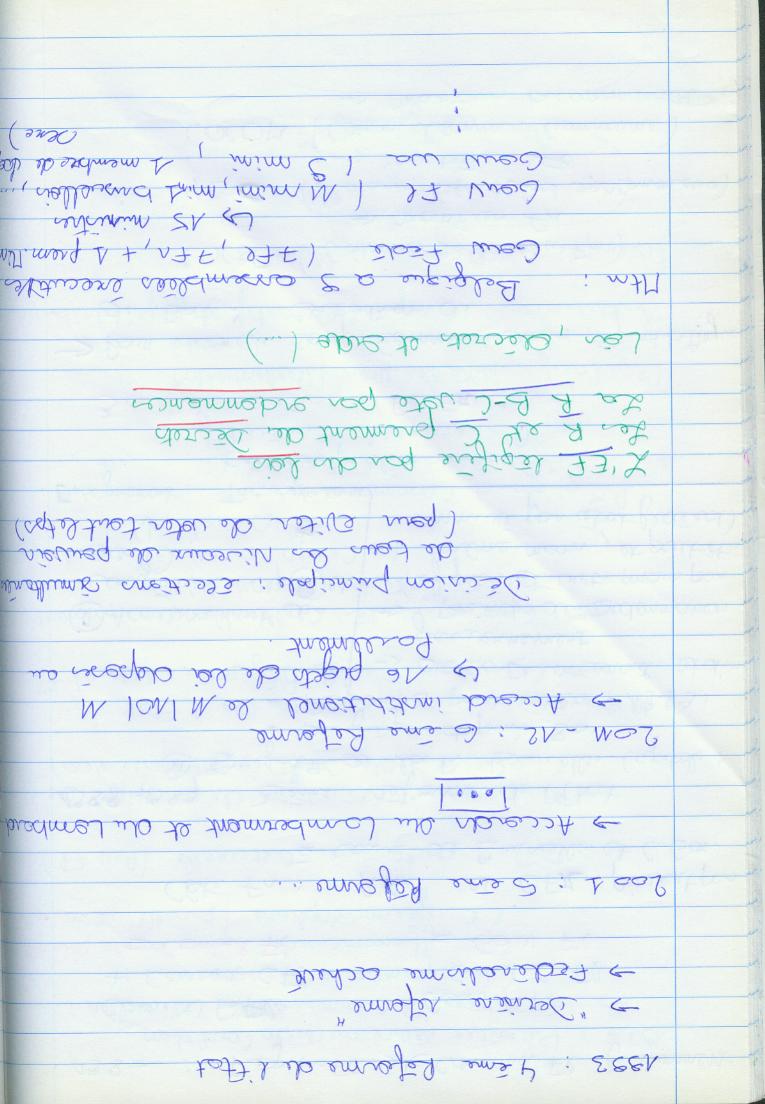 1993 : 4 ème Réforme de l'Etat
→ "Dernière réforme"
→ Fédéralisme achevé
2001 : 5 ème Réforme...
→ Accords du Lambermont et du Lombard
...
2011 - 12 : 6 ème Réforme
→ Accord institutionel le 11/10/11
↳ 16 projets de loi déposés au
Parlement.
Décision principale : élections simultanées
de tous les niveaux de pouvoir
(pour éviter de voter tout le tps)
L'EF légifère par des lois
Les R et C prennent des Décrets
La R B-C vote par ordonnances
Lois, décrets et ordo (....)
Mtn : Belgique a 9 assemblées éxecutives
Gouv Fédé (7 Fl, 7 Fr, + 1 prem. Min
↳ 15 ministres
Gouv Fl ( 11 mini, min 1 bruxellois, ...
Gouv wa ( 9 mini, 1 membre de
sexe)